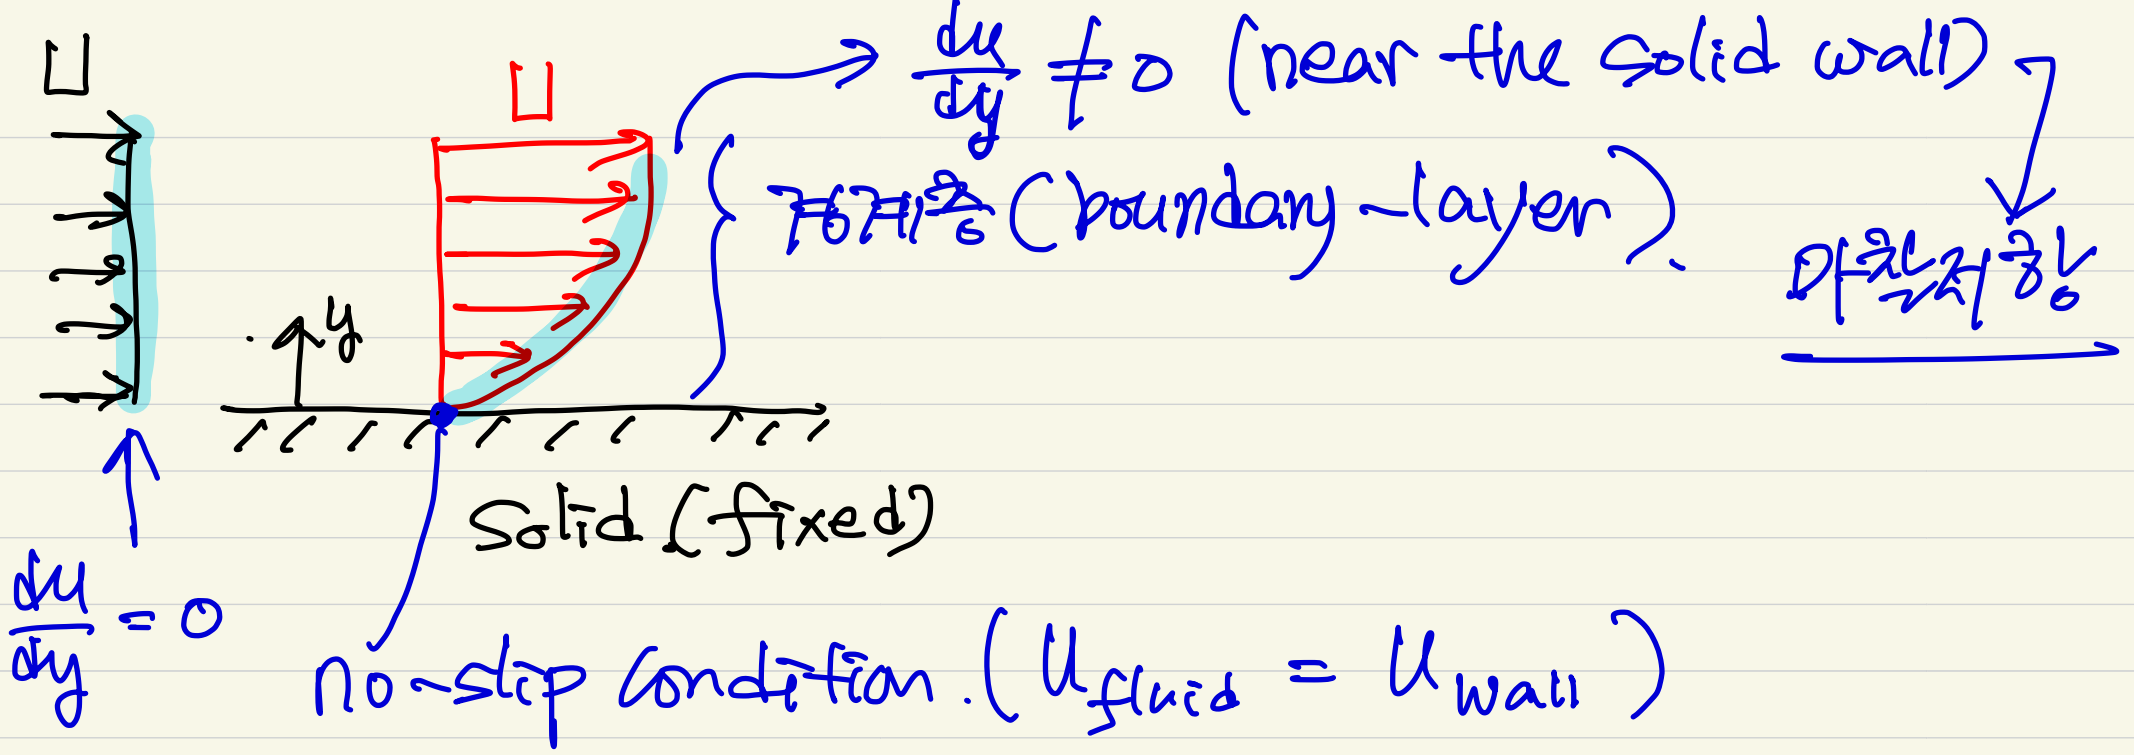 U
U
du/dy ≠ 0 (near the solid wall)
경계층 (boundary-layer).
마찰발생
y
solid (fixed)
du/dy = 0
no-slip condition. (U_fluid = U_wall)